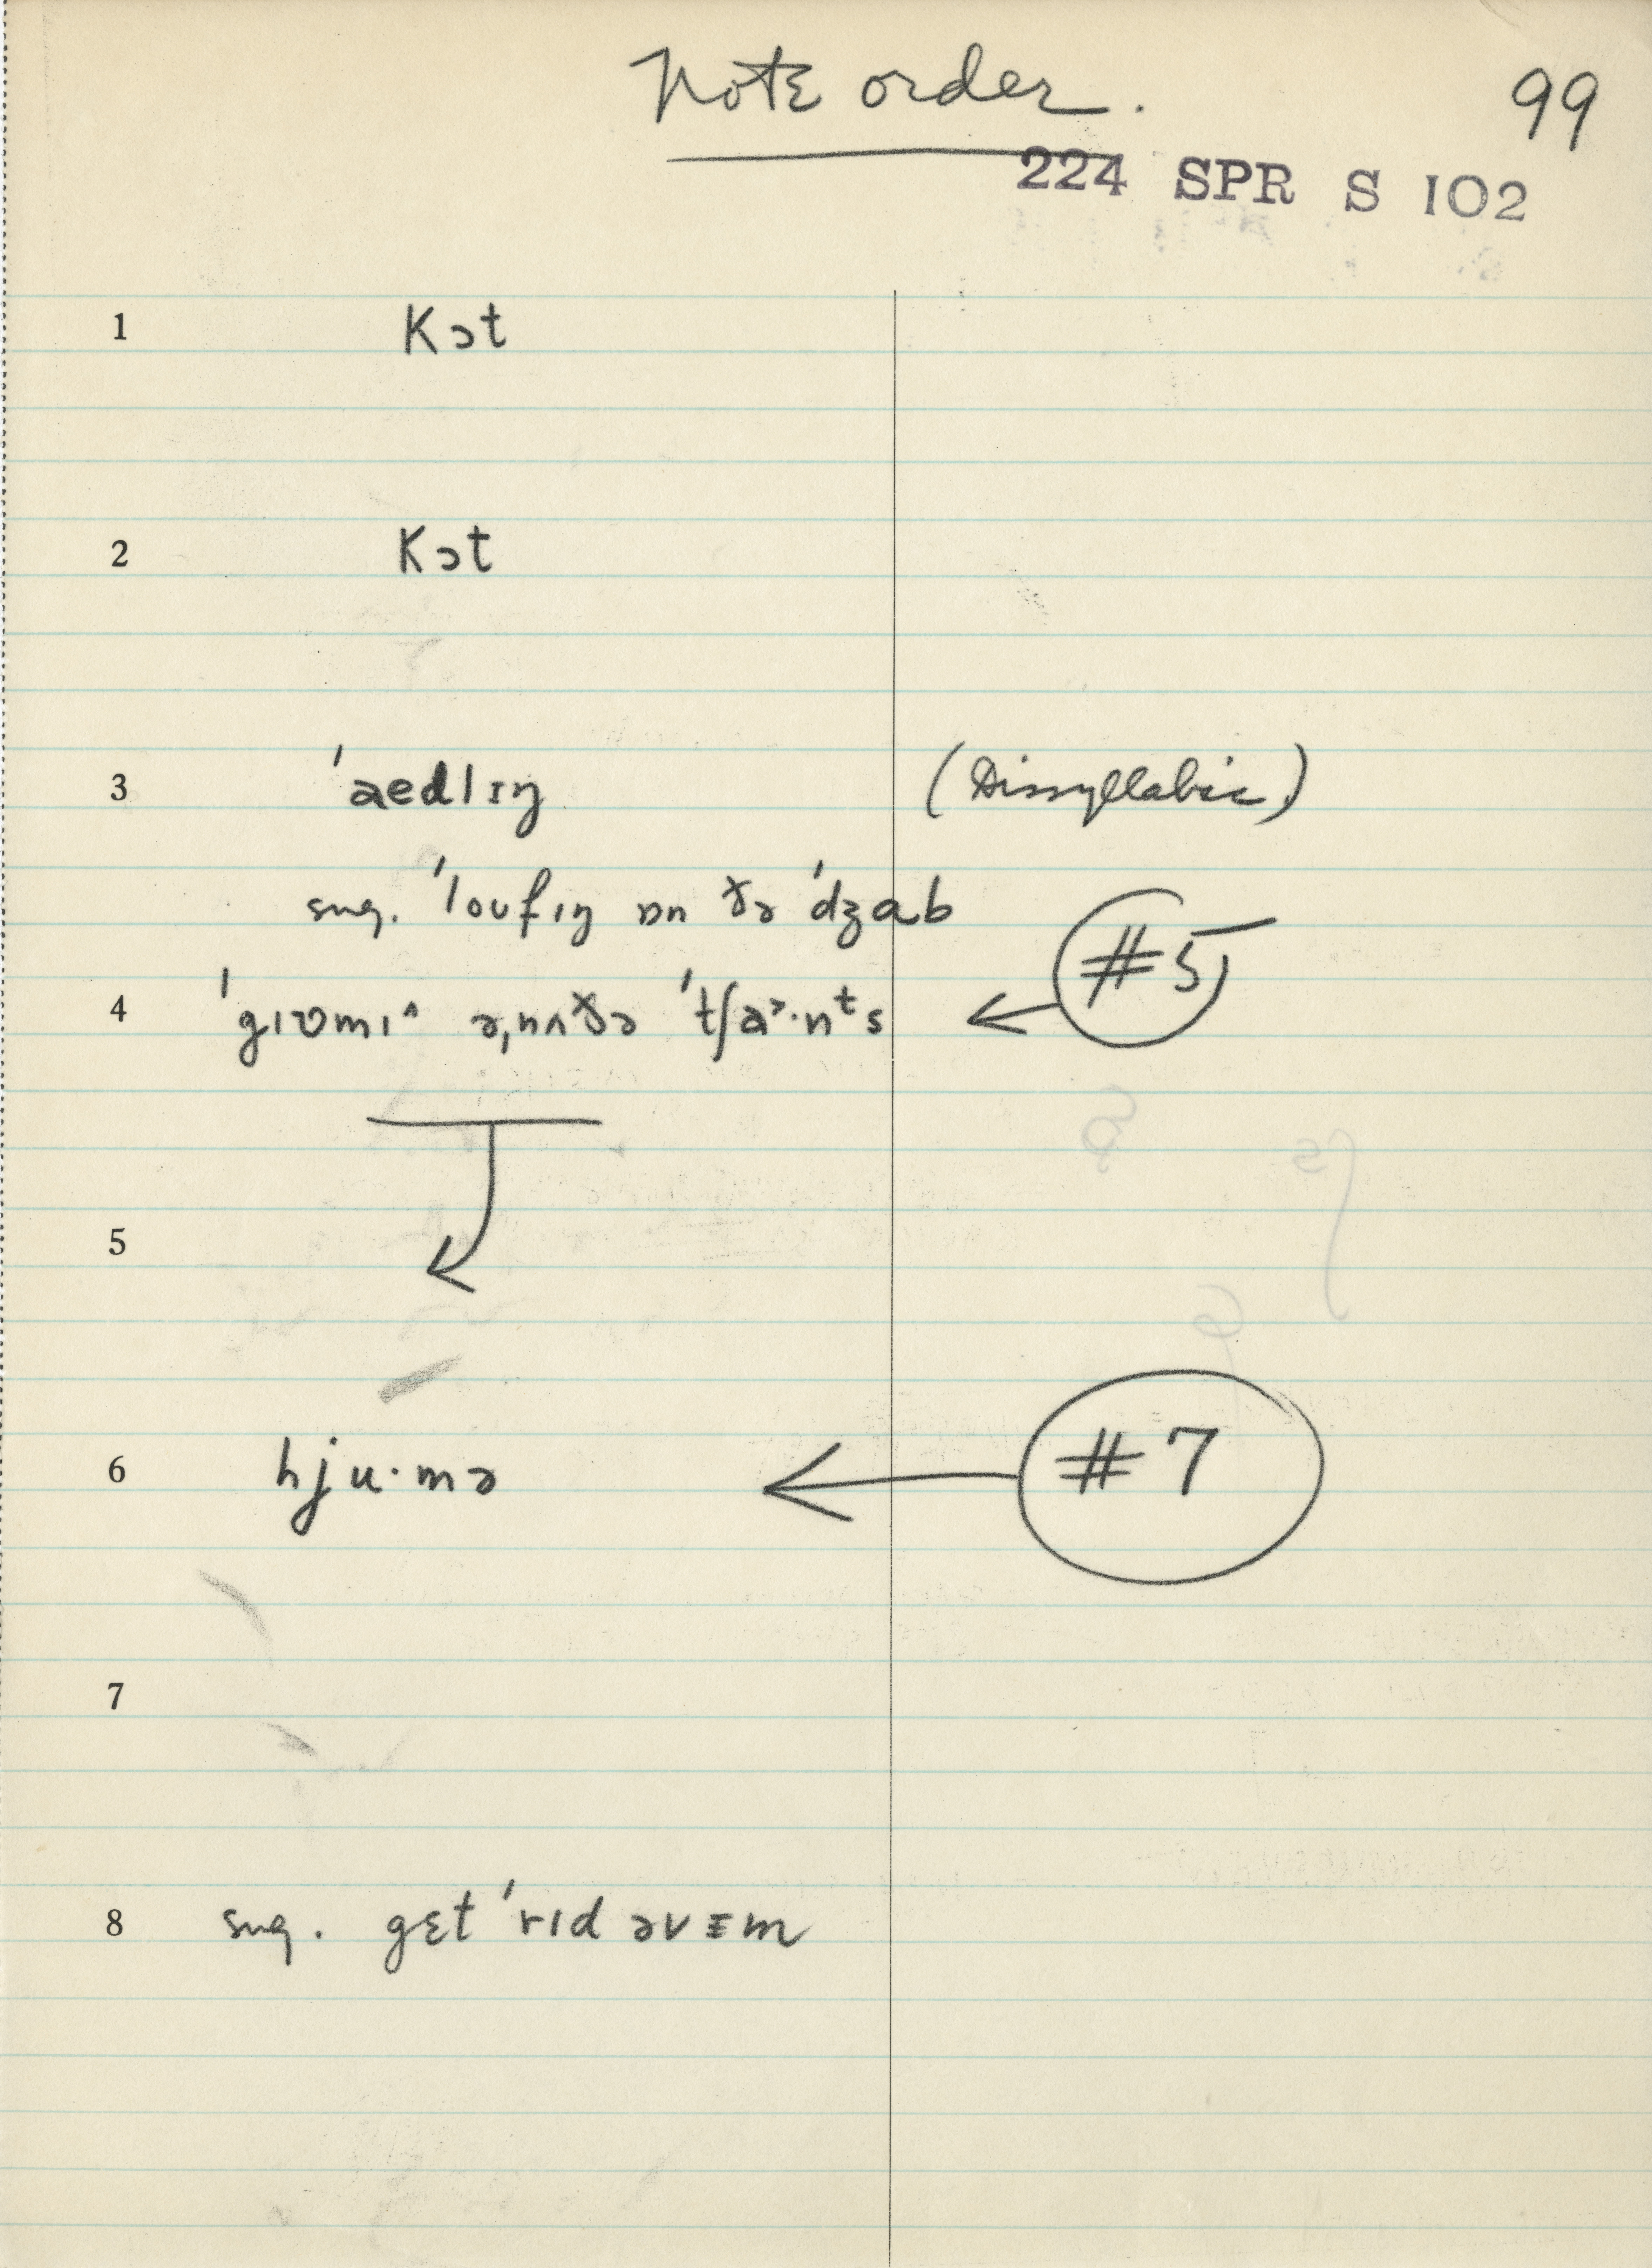 Note order.
99
224 SPR S 102
1 Kɔt
2 Kɔt
3 ˈaedlɪŋ (Dissyllabic)
sug. ˈloʊfıŋ ɒn ðə ˈdʒab
#5
4 ˈgıʊmıˆ ə,nʌðə ˈtʃa˃·nᵗs
5
6 hju·mə #7
7
8 sug. gɛt ˈrıd əvɪm